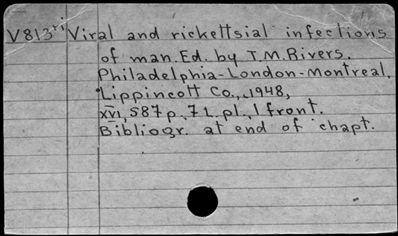 V813ri Viral and rickettsial infections
of man. Ed. by T.M. Rivers.
Philadelphia-London-Montreal,
Lippincott Co., 1948,
xvi, 587 p., 7 L. pl., 1 front.
Bibliogr. at end of chapt.